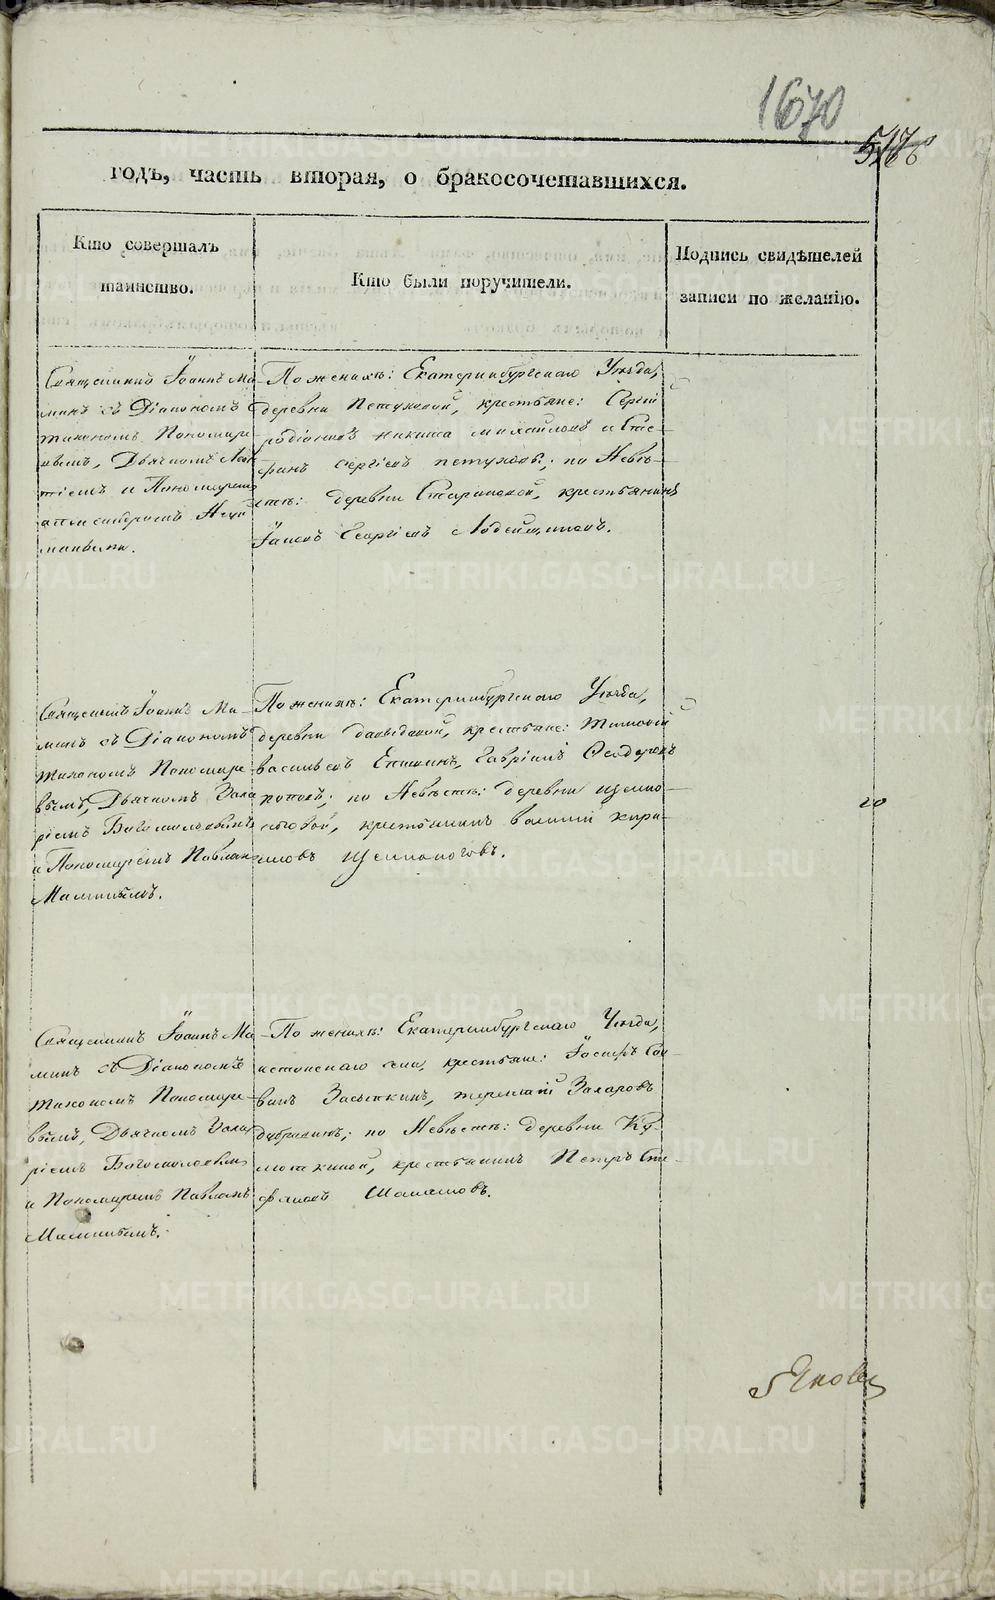 1670
годъ, часть вторая, о бракосочетавшихся.
Кто совершалъ
таинство.
Кто были поручители.
Подпись свидѣтелей
записи по желанію.
Священникъ Іоаннъ Ма-
минъ съ Діакономъ
Тихономъ Пономаре-
вымъ, Дьячкомъ
и Пономаремъ
По женихѣ: Екатеринбургскаго Уѣзда,
деревни Петуховой, крестьяне: Сергій
Родіоновъ Никита Михайловъ и Сте-
фанъ Сергіевъ Петуховы; по Невѣ-
стѣ: деревни крестьянинъ
Іаковъ Георгіевъ
Священникъ Іоаннъ Ма-
минъ съ Діакономъ
Тихономъ Пономаре-
вымъ, Дьячкомъ Вале
ріемъ Богомоловымъ
и Пономаремъ Павломъ
Маминымъ.
По женихѣ: Екатеринбургскаго Уѣзда,
деревни Давыдовой, крестьяне: Тимофей
Васильевъ Гавріилъ Феодоровъ
Поповъ; по Невѣстѣ: деревни Щелко-
ноговой, крестьянинъ Василій Кири-
ловъ Щелконоговъ.
20
Священникъ Іоаннъ Ма-
минъ съ Діакономъ
Тихономъ Пономаре-
вымъ, Дьячкомъ Вале
ріемъ Богомоловымъ
и Пономаремъ Павломъ
Маминымъ.
По женихѣ: Екатеринбургскаго Уѣзда,
села, крестьяне: Іосифъ Сав-
винъ Засыпкинъ, Терентій Захаровъ
по Невѣстѣ: деревни
крестьянинъ Петръ Сте-
фановъ
METRIKI.GASO-URAL.RU